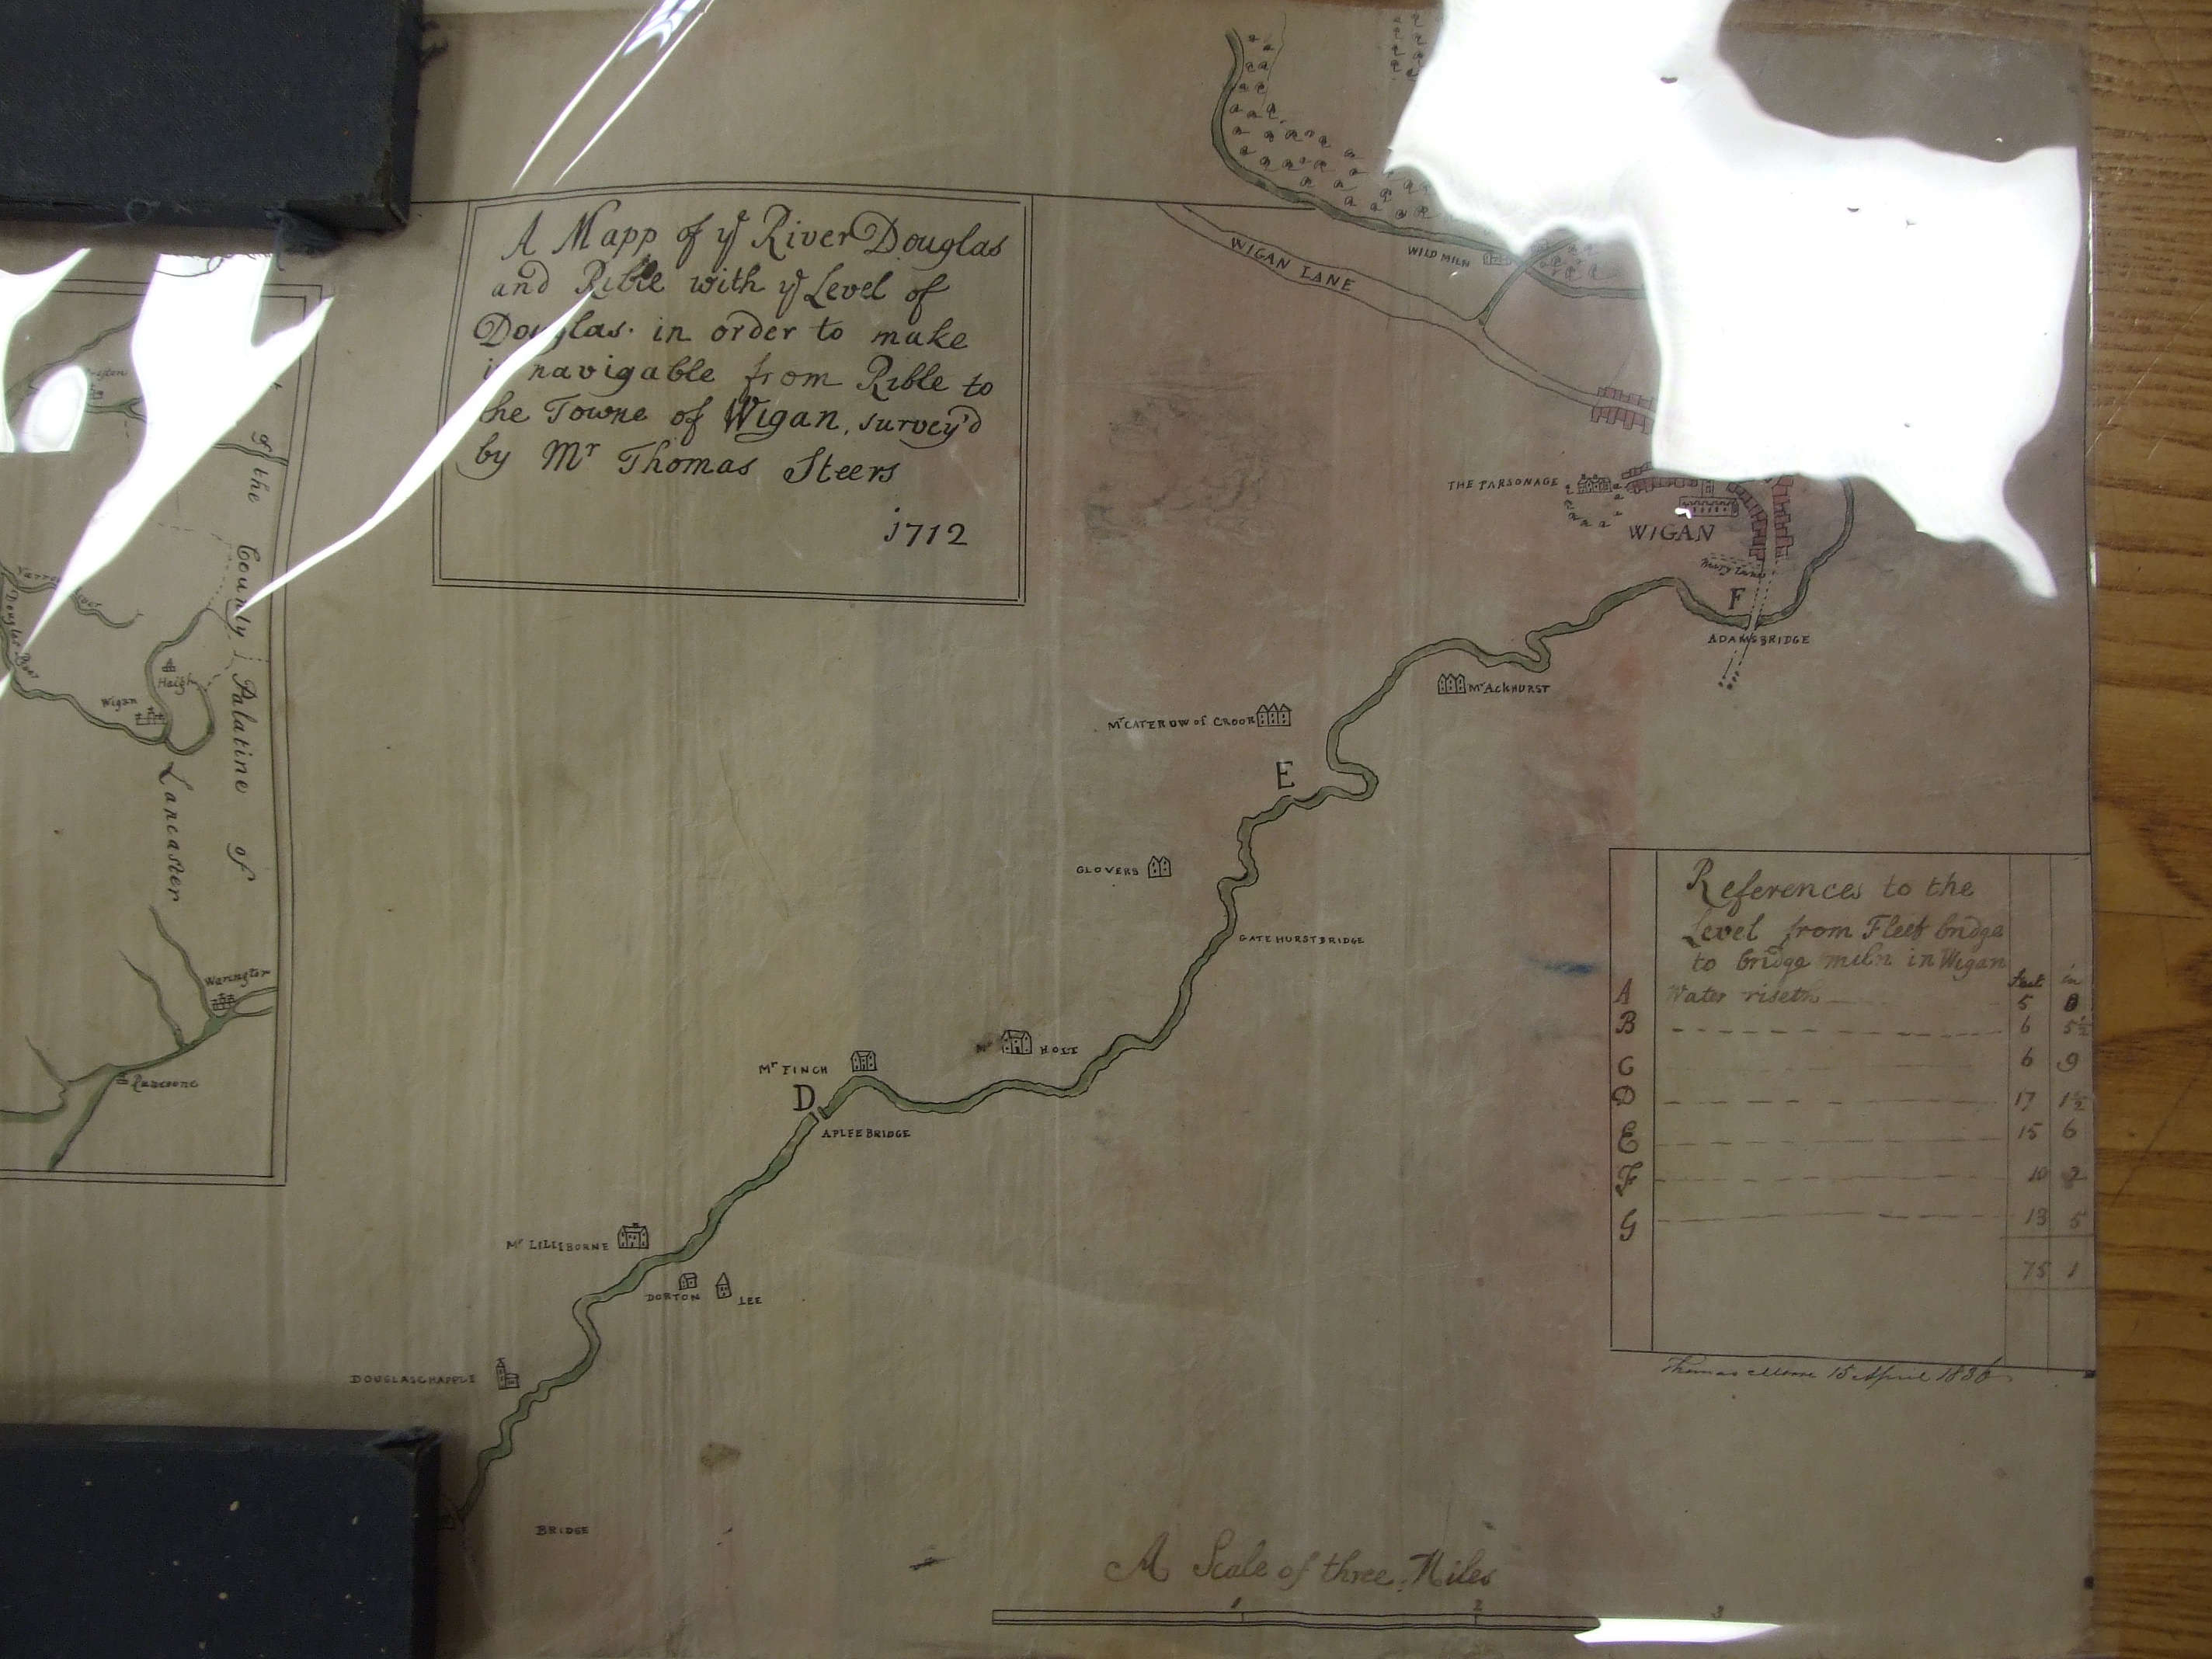 A Mapp of yͤ River Douglas
and Rible with yͤ Level of
Douglas. in order to make
it navigable from Rible to
the Towne of Wigan, survey'd
by Mʳ Thomas Steers
1712
WIGAN LANE
WILD MILN
THE PARSONAGE
WIGAN
F
ADAMSBRIDGE
Mʳ ACKHURST
Mʳ CATEROW of CROOK
E
GLOVERS
GATEHURSTBRIDGE
Mʳ HOLT
Mʳ FINCH
D
APLEEBRIDGE
Mʳ LILLIBORNE
DORTON
LEE
DOUGLASCHAPPLE
BRIDGE
of the County Palatine of
Lancaster
Yarrow
Douglas
Heigh
Wigan
Warington
Runcorne
References to the
Level from Fleet bridge
to bridge miln in Wigan
Feet in
A Water riseth 5 8
B 6 5½
C 6 9
D 17 1½
E 15 6
F 10 2
G 13 5
75 1
Thomas 15 April 1886
A Scale of three Miles
1 2 3